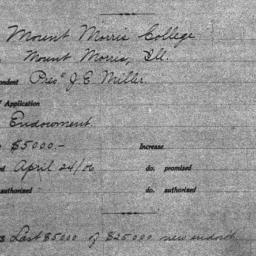 Mount Morris College
Mount Morris, Ill.
ondent Pres. J. E. Miller
Application
Endowment.
$5000.- Increase
April 24/06 do. promised
authorized do. authorized
Last $5000 of $25000 new endowt